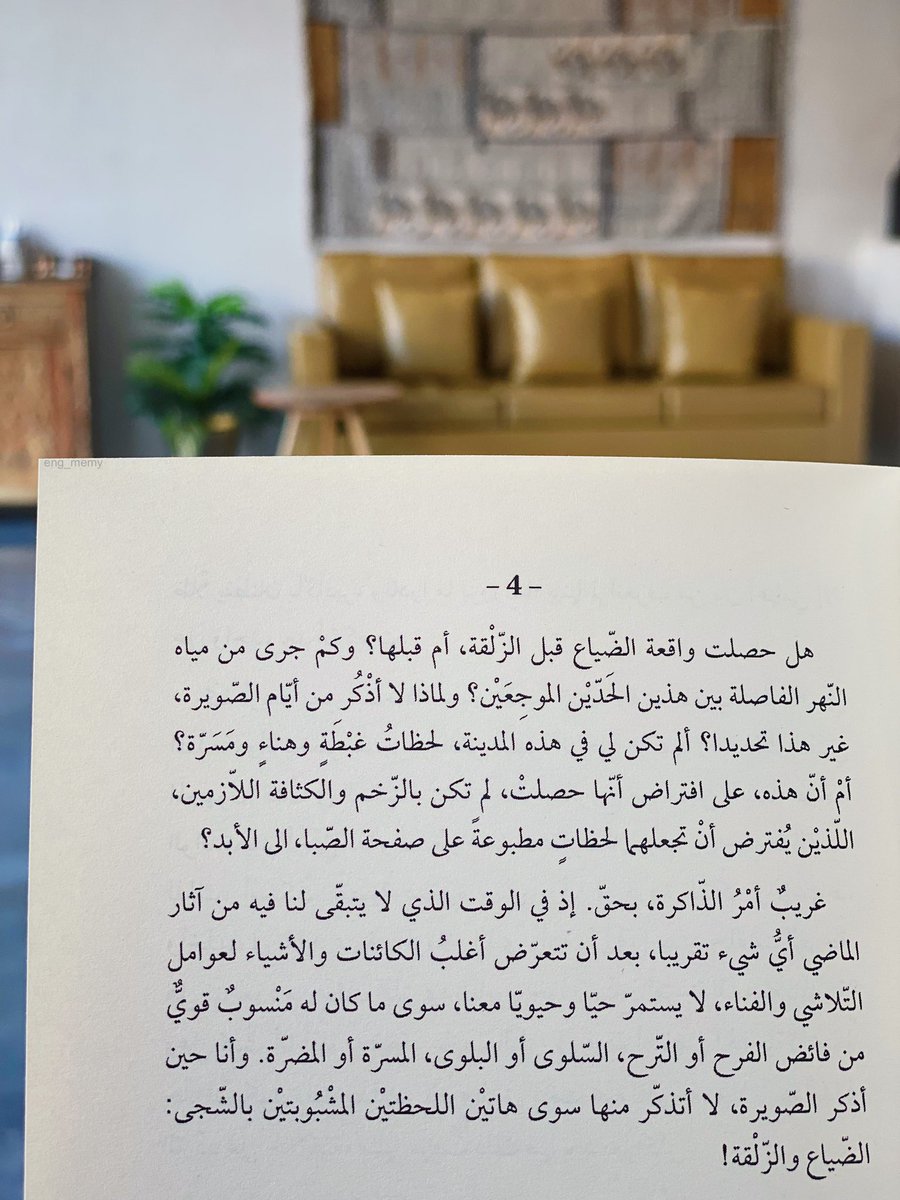 eng_memy
– 4 –
هل حصلت واقعة الضّياع قبل الزّلْقة، أم قبلها؟ وكمْ جرى من مياه
النّهر الفاصلة بين هذين الحَدّيْن الموجِعَيْن؟ ولماذا لا أذْكُر من أيّام الصّويرة،
غير هذا تحديدا؟ ألم تكن لي في هذه المدينة، لحظاتُ غبْطَةٍ وهناءٍ ومَسَرّة؟
أمْ أنّ هذه، على افتراض أنّها حصلتْ، لم تكن بالزّخم والكثافة اللاّزمين،
اللّذيْن يُفترض أنْ تجعلهما لحظاتٍ مطبوعةً على صفحة الصّبا، الى الأبد؟
غريبٌ أمْرُ الذّاكرة، بحقّ. إذ في الوقت الذي لا يتبقّى لنا فيه من آثار
الماضي أيُّ شيء تقريبا، بعد أن تتعرّض أغلبُ الكائنات والأشياء لعوامل
التّلاشي والفناء، لا يستمرّ حيّا وحيويّا معنا، سوى ما كان له مَنْسوبٌ قويٌّ
من فائض الفرح أو التّرح، السّلوى أو البلوى، المسرّة أو المضرّة. وأنا حين
أذكر الصّويرة، لا أتذكّر منها سوى هاتيْن اللحظتيْن المشْبُوبتيْن بالشّجى:
الضّياع والزّلْقة!